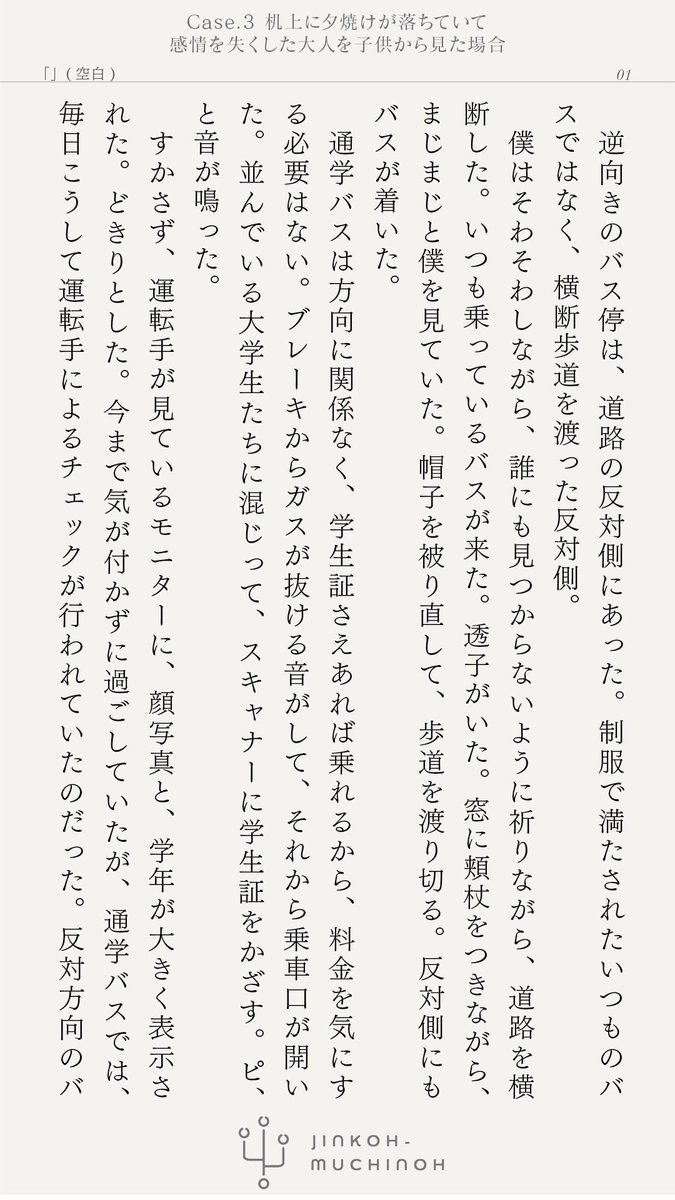 Case.3 机上に夕焼けが落ちていて
感情を失くした大人を子供から見た場合
「」(空白)
01
逆向きのバス停は、道路の反対側にあった。制服で満たされたいつものバ
スではなく、横断歩道を渡った反対側。
僕はそわそわしながら、誰にも見つからないように祈りながら、道路を横
断した。いつも乗っているバスが来た。透子がいた。窓に頬杖をつきながら、
まじまじと僕を見ていた。帽子を被り直して、歩道を渡り切る。反対側にも
バスが着いた。
通学バスは方向に関係なく、学生証さえあれば乗れるから、料金を気にす
る必要はない。ブレーキからガスが抜ける音がして、それから乗車口が開い
た。並んでいる大学生たちに混じって、スキャナーに学生証をかざす。ピ、
と音が鳴った。
すかさず、運転手が見ているモニターに、顔写真と、学年が大きく表示さ
れた。どきりとした。今まで気が付かずに過ごしていたが、通学バスでは、
毎日こうして運転手によるチェックが行われていたのだった。反対方向のバ
JINKOH-
MUCHINOH